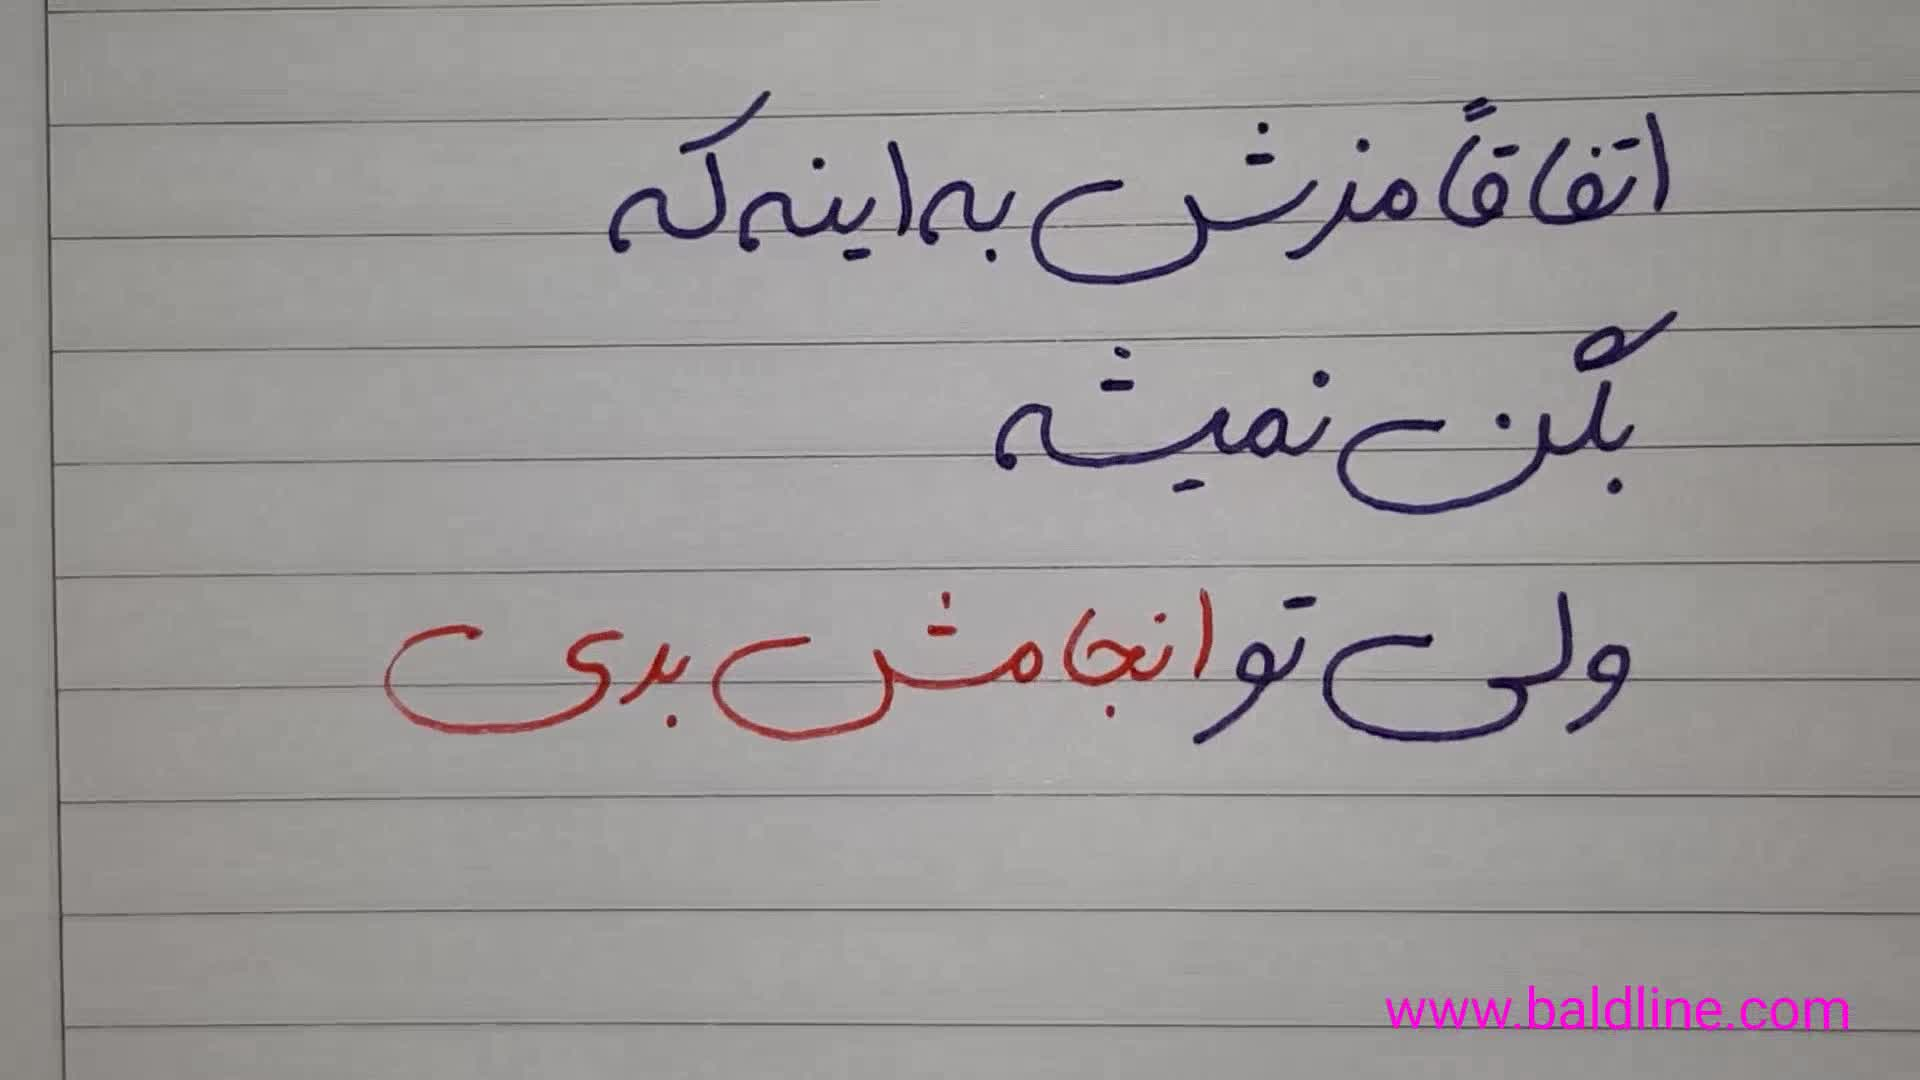 اتفاقاً مزش به اینه که
بگن نمیشه
ولی تو انجامش بدی
www.baldline.com